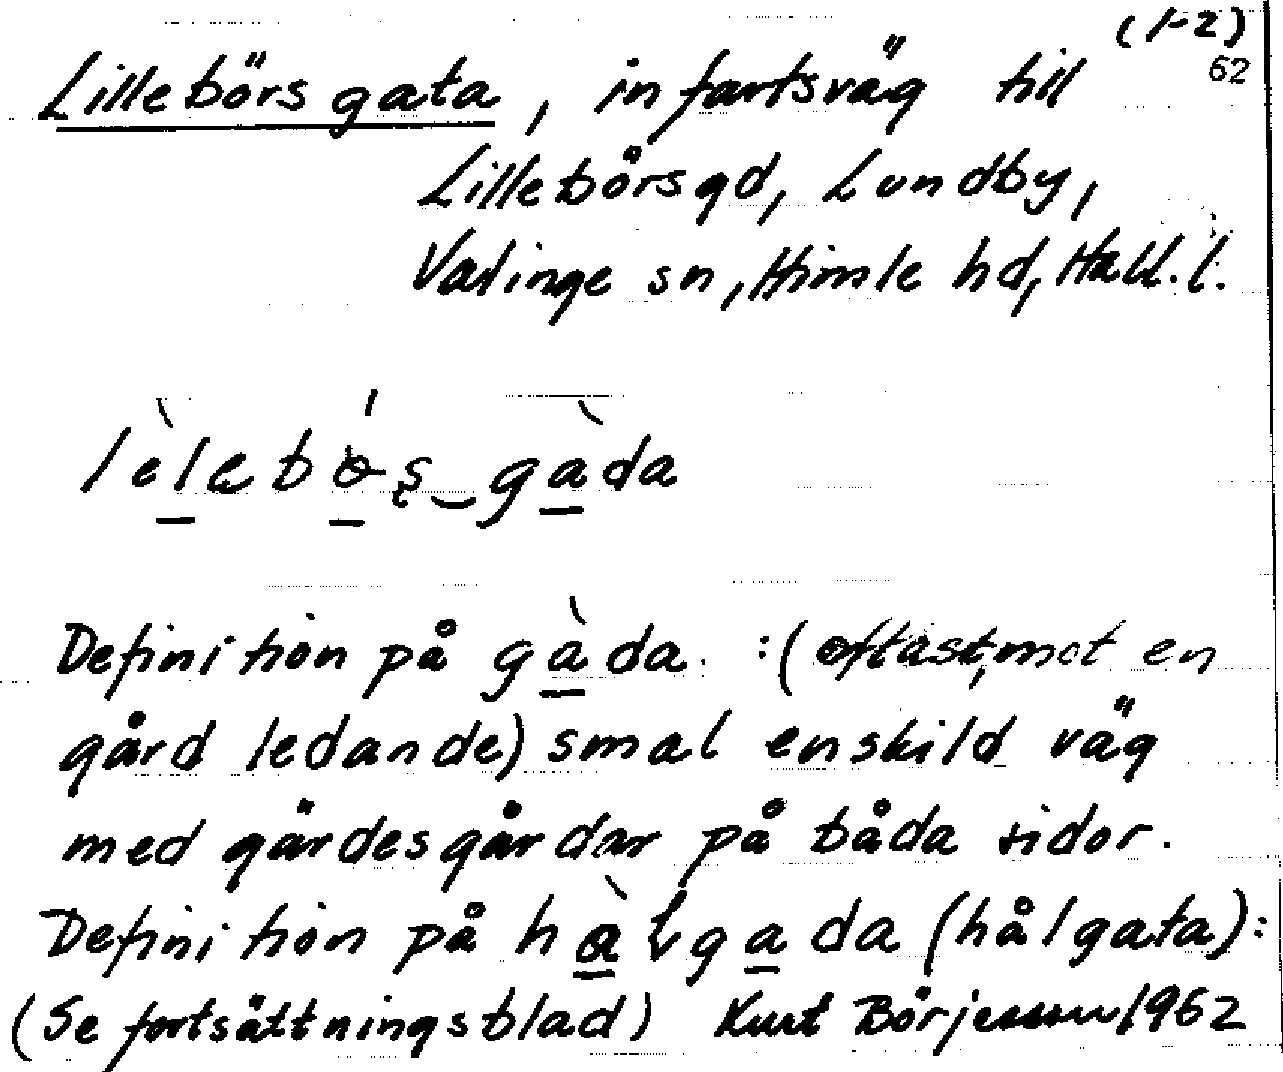 (1-2)
62
Lillebörsgata, infartsväg till
Lillebörsgd, Lundby,
Valinge sn, Himle hd, Hall. l.
lèlebǿş‿gàda
Definition på gàda. :(oftast, mot en
gård ledande) smal enskild väg
med gärdesgårdar på båda sidor.
Definition på hàlgada (hålgata):
(Se fortsättningsblad) Kurt Börjesson 1962